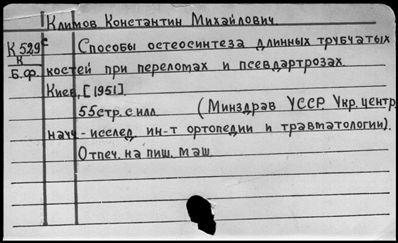 Климов Константин Михайлович.
К 529с Способы остеосинтеза длинных трубчатых
к
Б.ф. костей при переломах и псевдартрозах.
Киев, [1951]
55 стр. с илл. (Минздрав УССР. Укр. центр.
научн.-исслед. ин-т ортопедии и травматологии).
Отпеч. на пиш. маш.